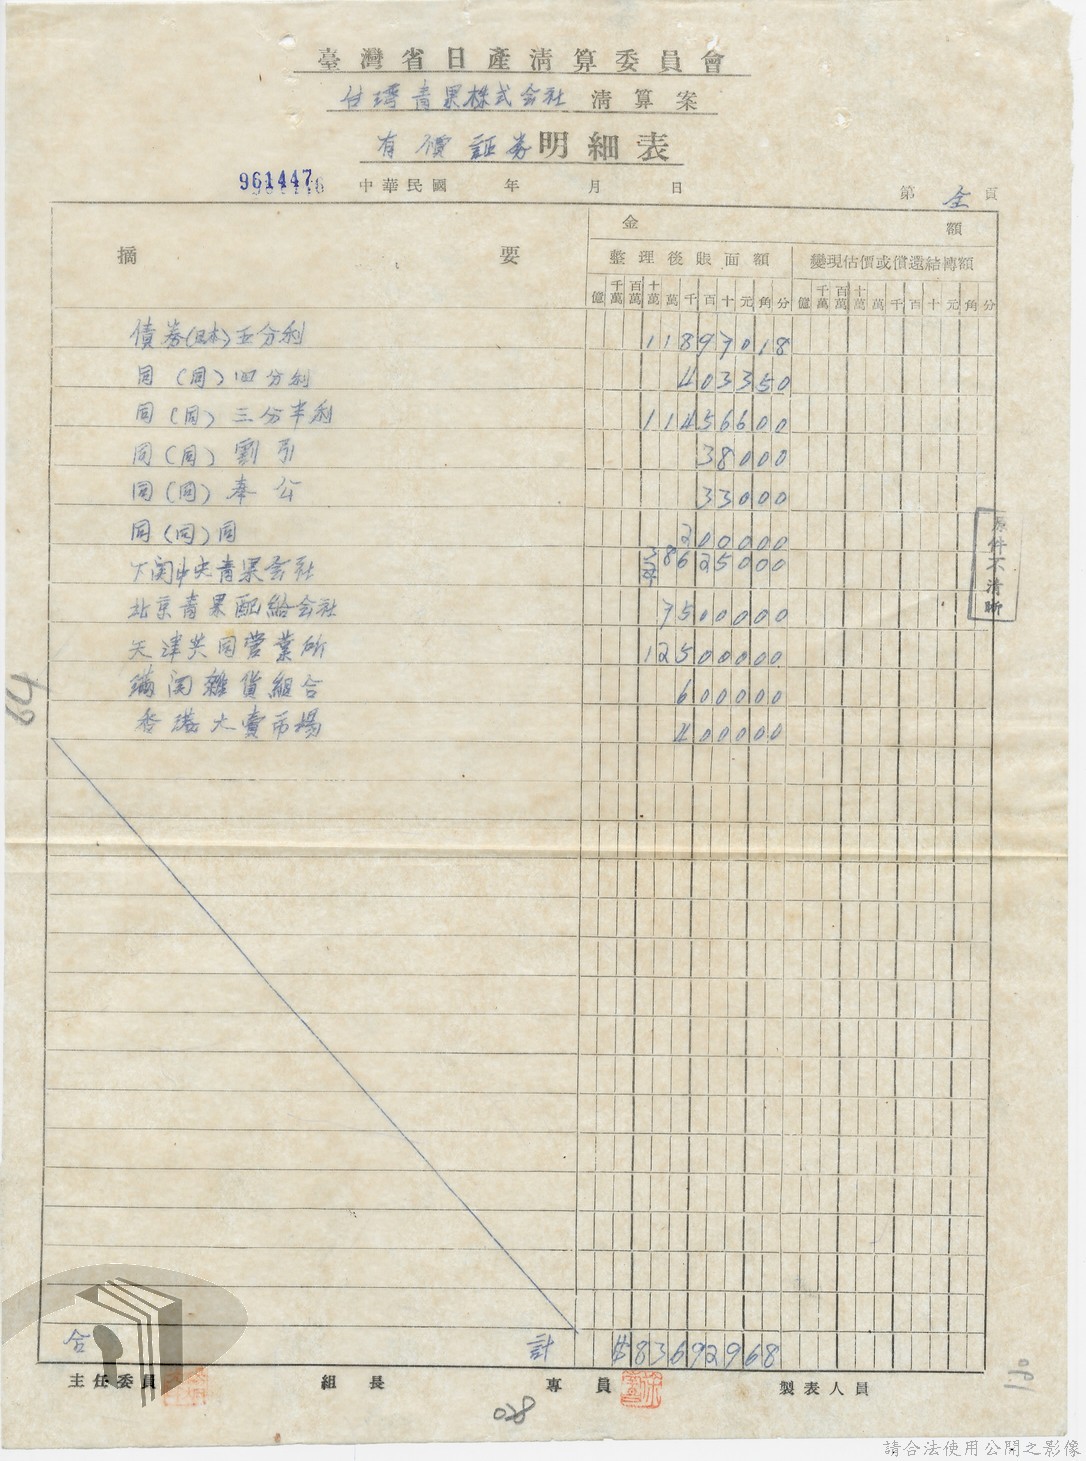 臺灣省日產清算委員會
台湾青果株式会社 清算案
有價証券明細表
961447
中華民國 年 月 日
第 全 頁
摘 要
金 額
整理後賬面額 變現估價或償還結轉額
億 千萬 百萬 十萬 萬 千 百 十 元 角 分 億 千萬 百萬 十萬 萬 千 百 十 元 角 分
債券(日本)五分利 11897018
同(同)四分利 403350
同(同)三分半利 11456600
同(同)割引 38000
同(同)奉公 33000
同(同)同 200000
中央青果会社 38625000
北京青果配給会社 7500000
天津共同營業所 12500000
雜貨組合 600000
香港大賣市場 400000
原件不清晰
64
合 計 $83692968
主任委員 組長 專員 製表人員
120
請合法使用公開之影像